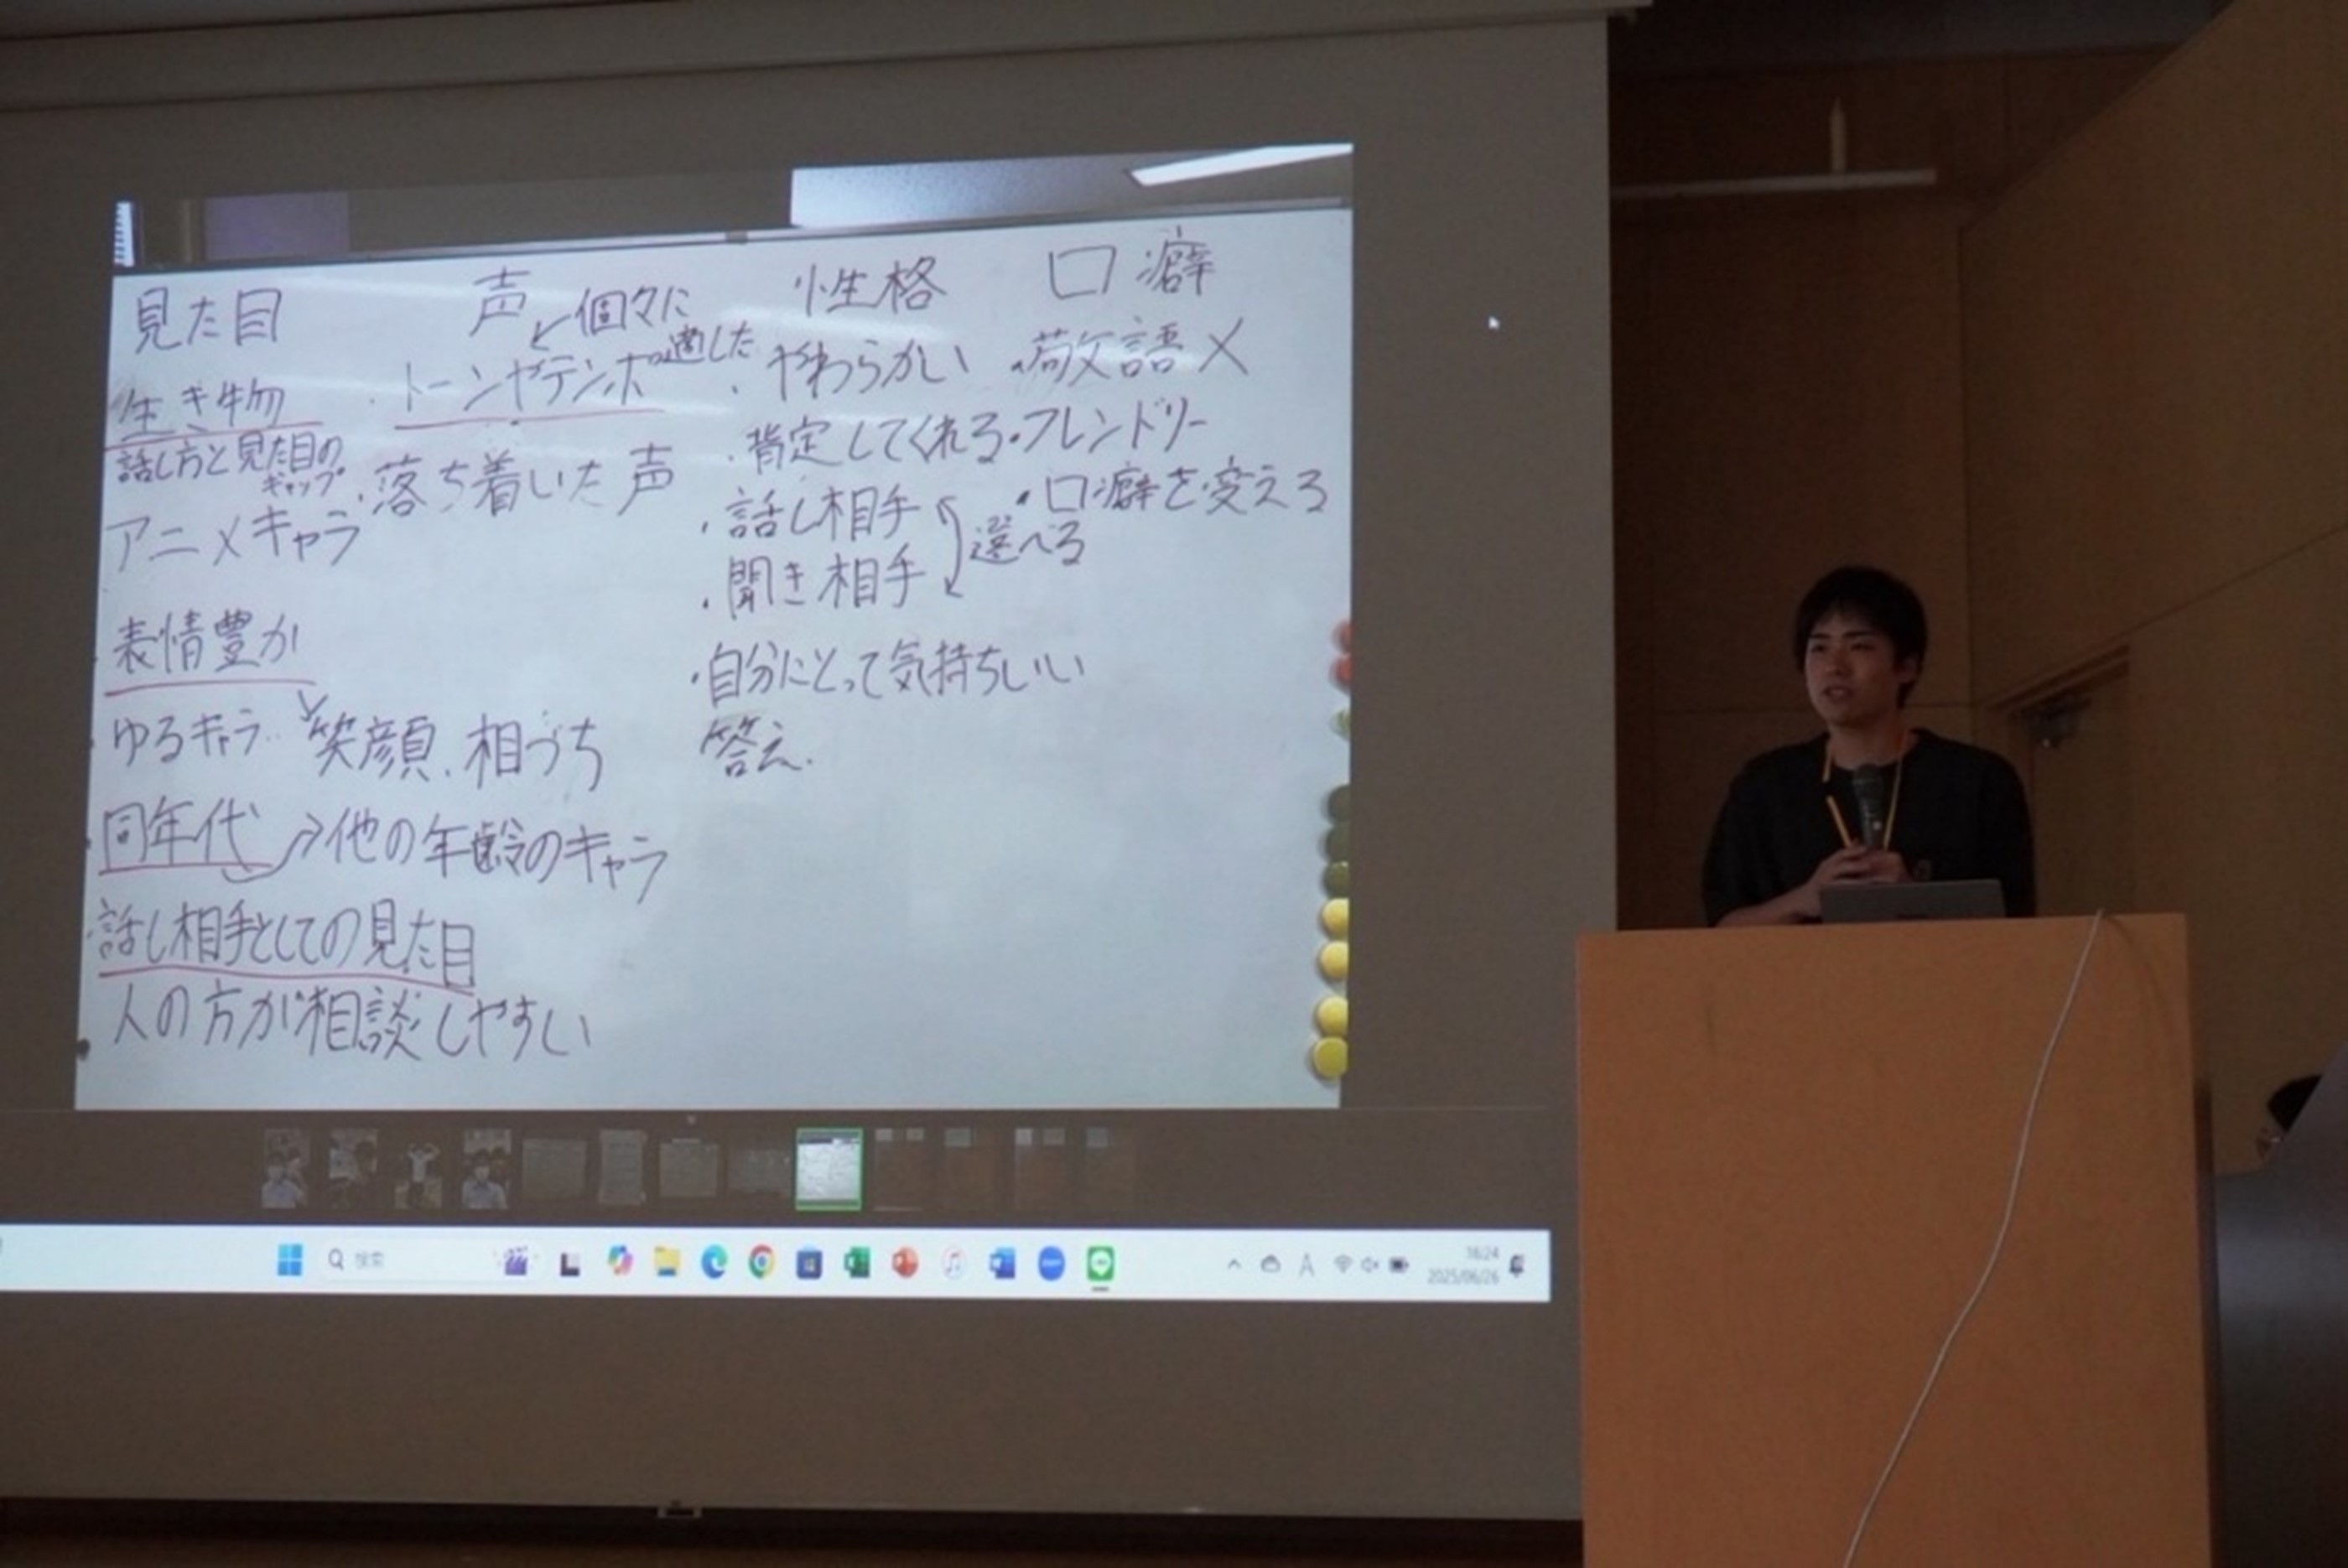 見た目
生き物
話し方と見た目の
ギャップ
アニメキャラ
表情豊か
ゆるキャラ
笑顔、相づち
同年代→他の年齢のキャラ
話し相手としての見た目
人の方が相談しやすい
声
個々に
適した
・トーンやテンポ
・落ち着いた声
性格
・やわらかい
・肯定してくれる
・話し相手
・聞き相手
選べる
・自分にとって気持ちいい
答え.
口癖
・敬語×
・フレンドリー
・口癖を変える
検索
A
16:24
2025/06/26